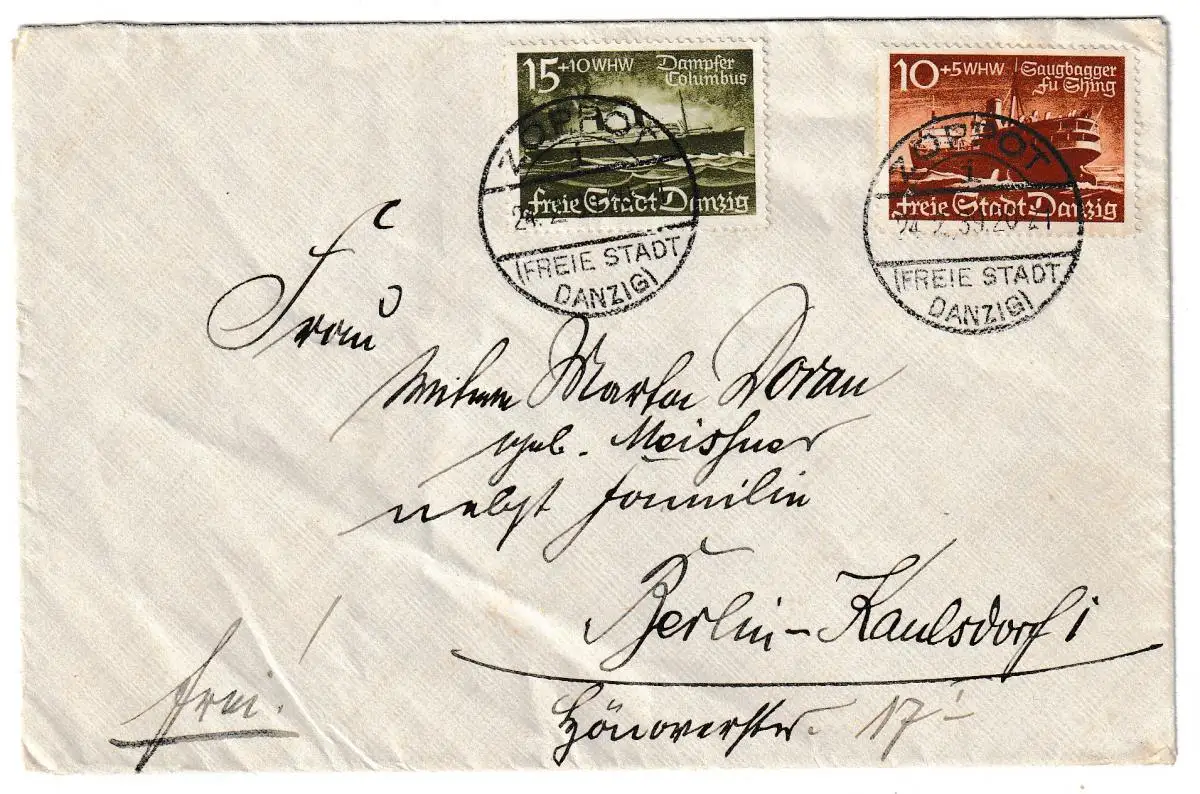 15 +10 WHW Dampfer
Columbus
Freie Stadt Danzig
10 +5 WHW Saugbagger
Fu Shing
Freie Stadt Danzig
ZOPPOT
1
24. 2.
(FREIE STADT
DANZIG)
ZOPPOT
1
24. 2. 39. 20-21
(FREIE STADT
DANZIG)
Frau
Witwe Martha Doran
geb. Meissner
nebst Familie
Berlin-Kaulsdorf 1
Hönowerstr. 17
frei!